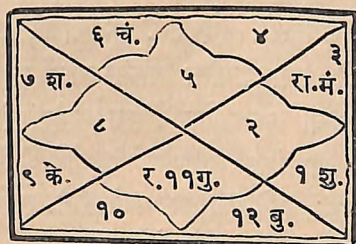 ६ चं.
४
३
७ श.
५
रा.मं.
८
२
९ के.
र.११गु.
१ शु.
१०
१२ बु.